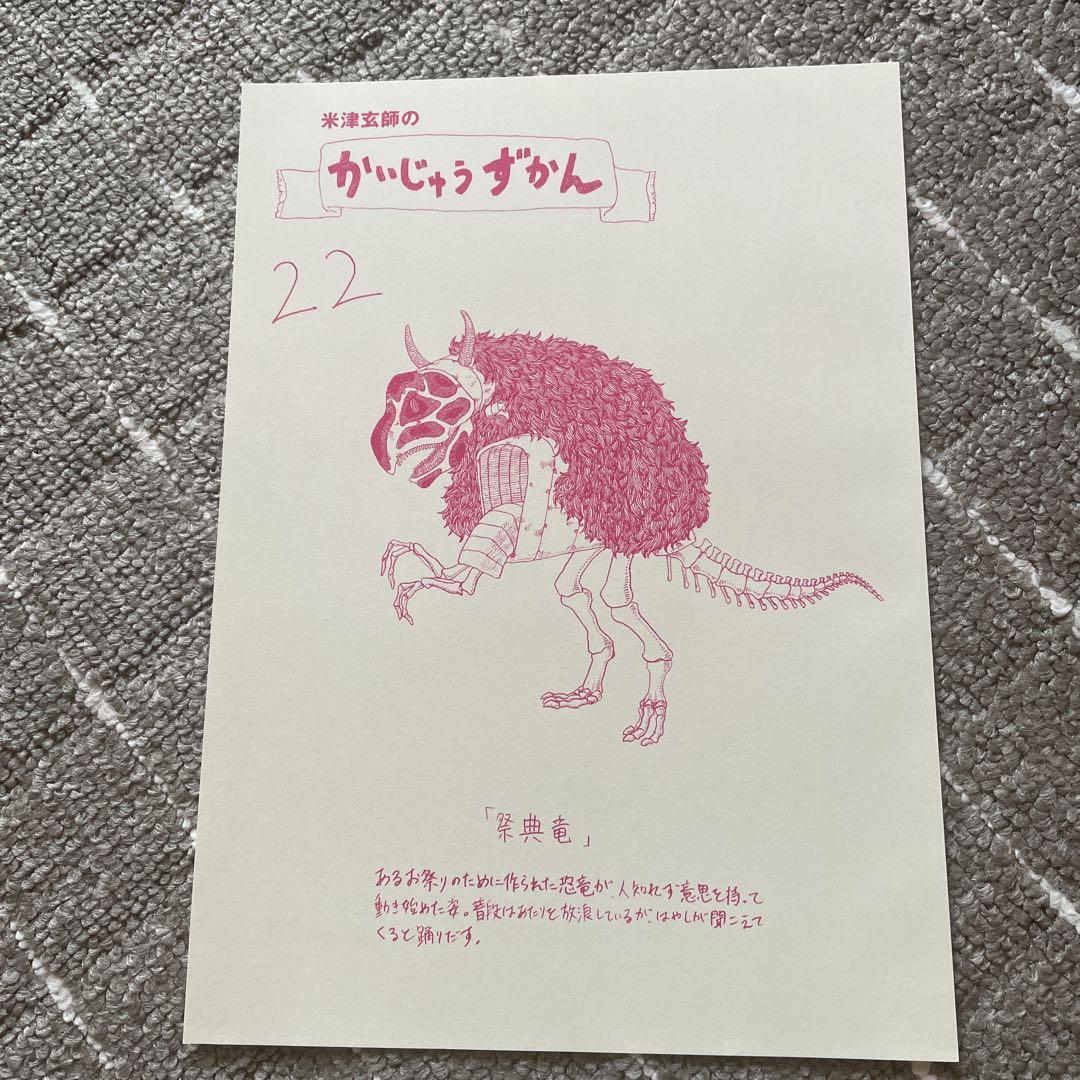 米津玄師の
かいじゅうずかん
22
「祭典竜」
あるお祭りのために作られた恐竜が、人知れず意思を持って
動き始めた姿。普段はあたりを放浪しているが、はやしが聞こえて
くると踊りだす。